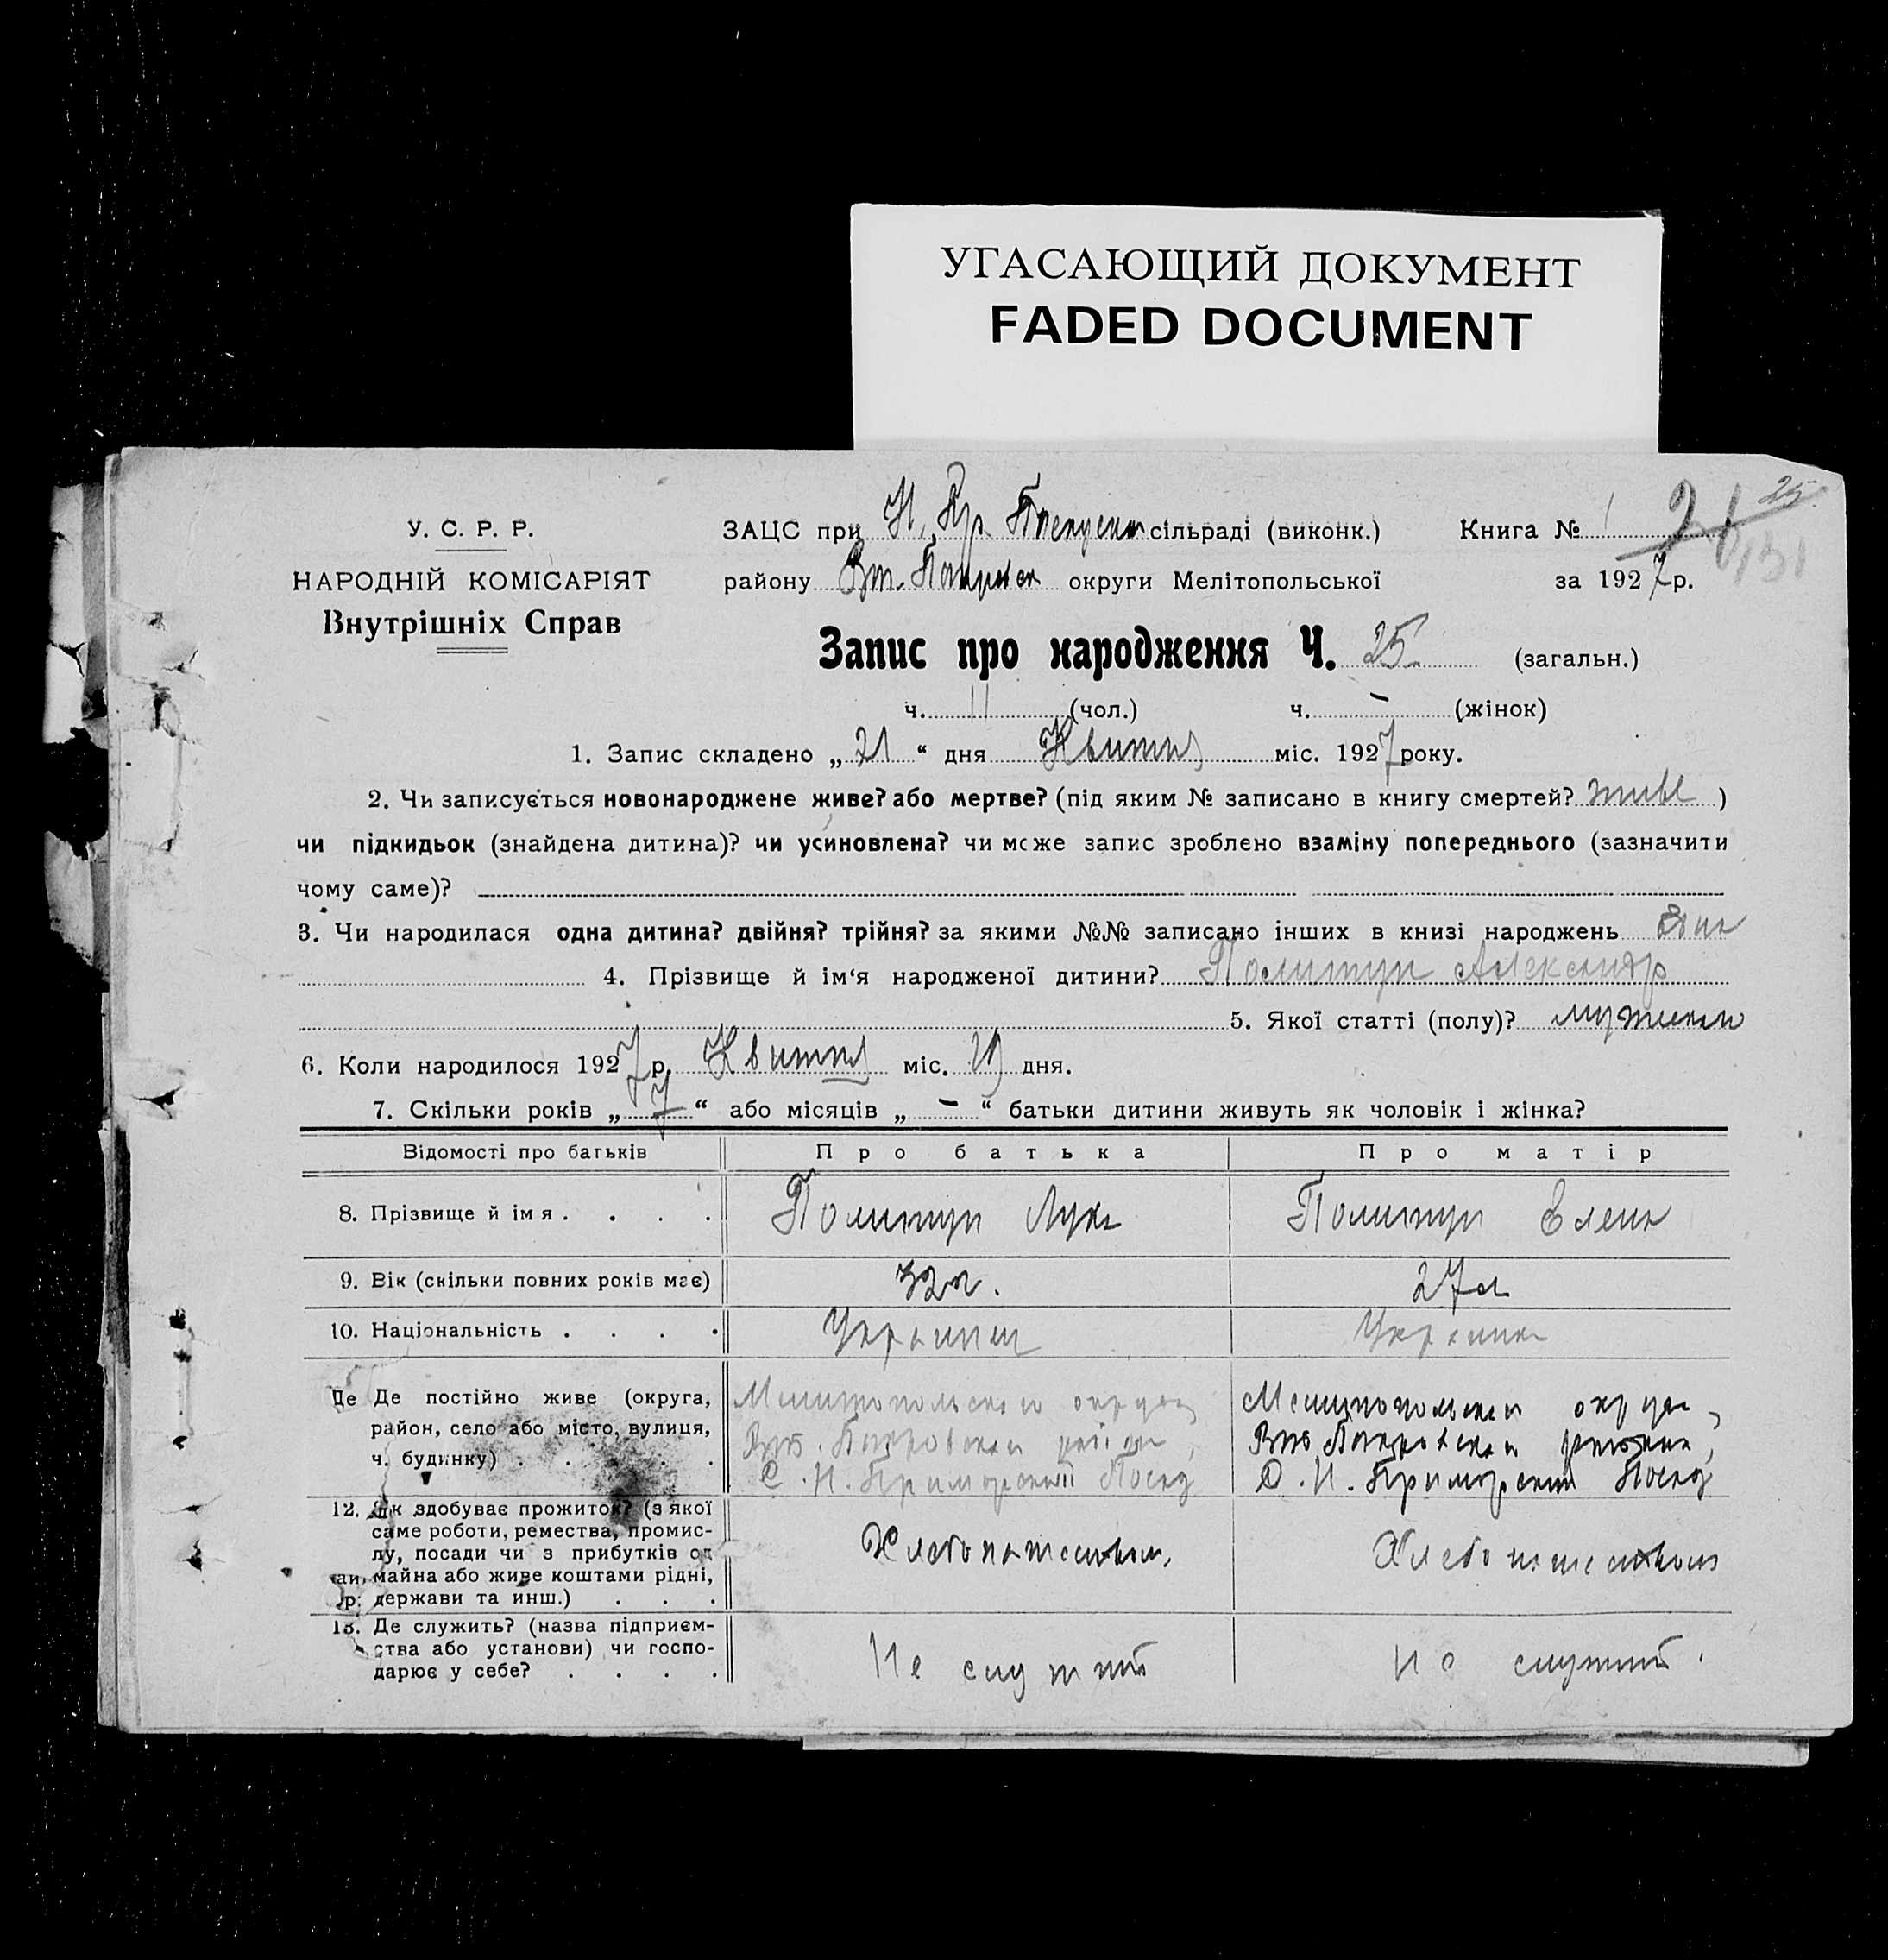 УГАСАЮЩИЙ ДОКУМЕНТ
FADED DOCUMENT
25
У. С. Р. Р.
НАРОДНІЙ КОМІСАРІЯТ
Внутрішніх Справ
ЗАЦС при Н. Пр. сільраді (виконк.)
Книга № 1
району Вт. округи Мелітопольської
за 1927 р.
Запис про народження Ч. 25 (загальн.)
ч. 11 (чол.) ч. – (жінок)
1. Запис складено „21“ дня Квитня міс. 1927 року.
2. Чи записується новонароджене живе? або мертве? (під яким № записано в книгу смертей? живе)
чи підкидьок (знайдена дитина)? чи усиновлена? чи може запис зроблено взаміну попереднього (зазначити
чому саме)?
3. Чи народилася одна дитина? двійня? трійня? за якими №№ записано інших в книзі народжень
4. Прізвище й ім‘я народженої дитини? Полищук Александр
5. Якої статті (полу)?
6. Коли народилося 1927 р. Квитня міс. 19 дня.
7. Скільки років „7“ або місяців „–“ батьки дитини живуть як чоловік і жінка?
Відомості про батьків Про батька Про матір
8. Прізвище й імя . . . . Полищук Лука Полищук Елена
9. Вік (скільки повних років має) 32л. 27л
10. Національність . . . . Украинец Украинка
Де постійно живе (округа, Мелитопольская округа, Мелитопольская округа,
район, село або місто, вулиця, Вто. Покровского района, Вто Покровского района,
ч. будинку) . . . . С. Н. Приморский Посад С. Н. Приморский Посад
12. Як здобуває прожиток? (з якої
саме роботи, ремества, промис-
лу, посади чи з прибутків од Хлебопашеством. Хлебопашеством
майна або живе коштами рідні,
держави та инш.) . . .
13. Де служить? (назва підприєм-
ства або установи) чи госпо- Не служит Не служит.
дарює у себе? . . . .